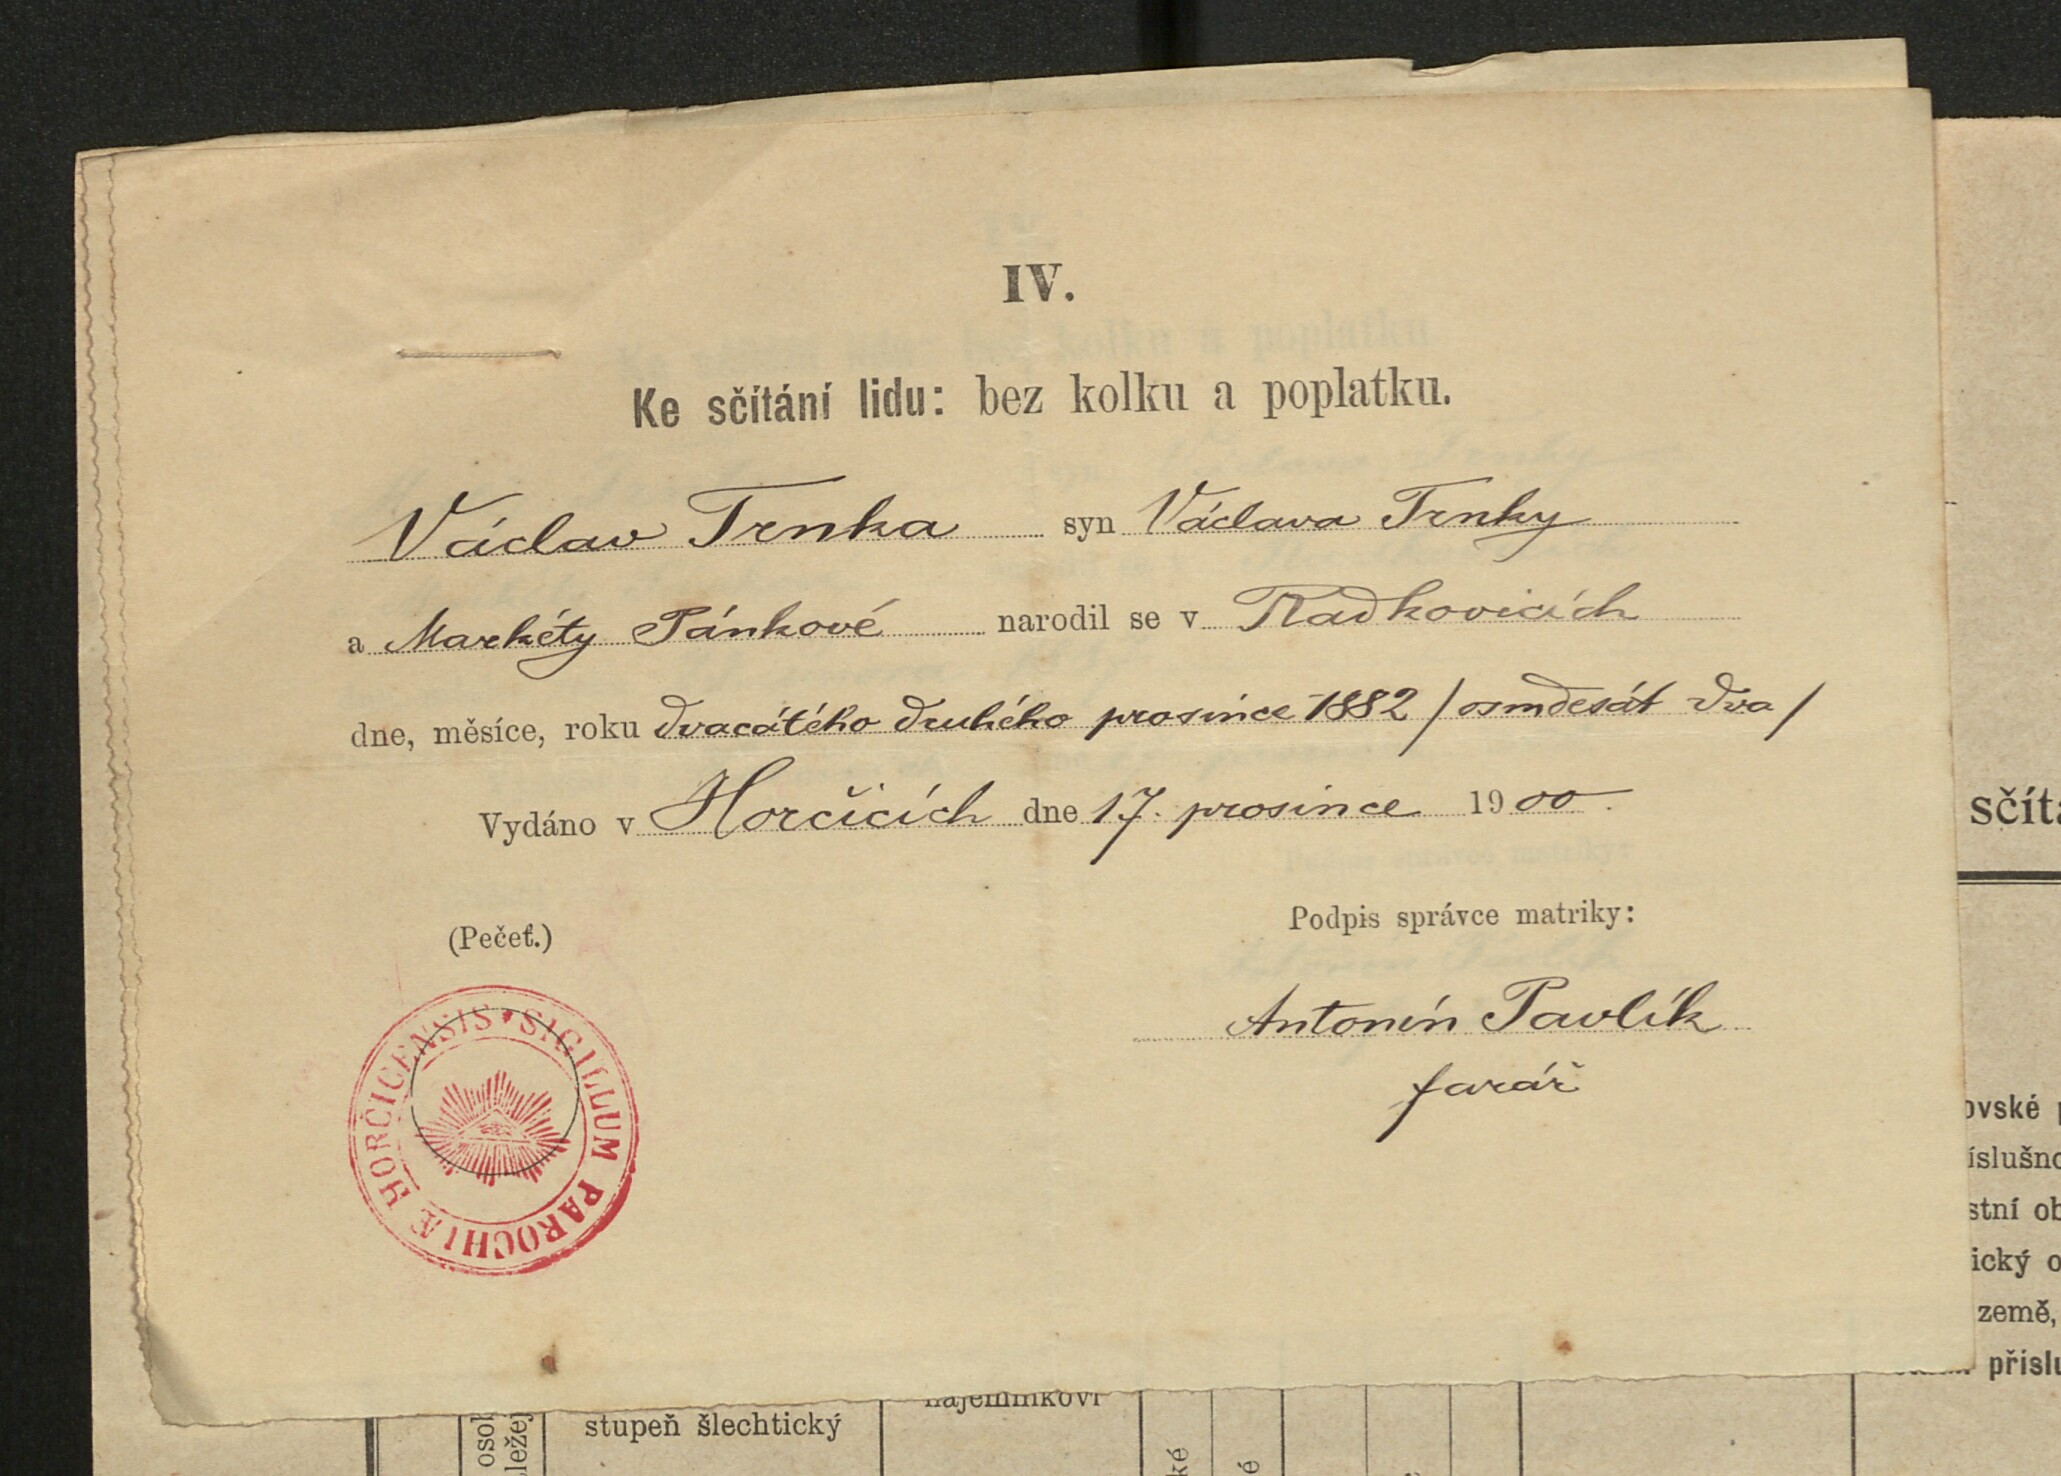 IV.
Ke sčítání lidu: bez kolku a poplatku.
Václav Trnka syn Václava Trnky
a Markéty Pánkové narodil se v Radkovicích
dne, měsíce, roku dvacátého druhého prosince 1882 / osmdesát dva /
Vydáno v Horčicích dne 17. prosince 1900.
(Pečeť.)
Podpis správce matriky:
Antonín Pavlík
farář
SIGILLUM PAROCHIÆ HORČICENSIS
sčít
ovské p
íslušno
stní ob
ický o
země,
příslu
osob
ležej
stupeň šlechtický
nájemníkovi
ké
é